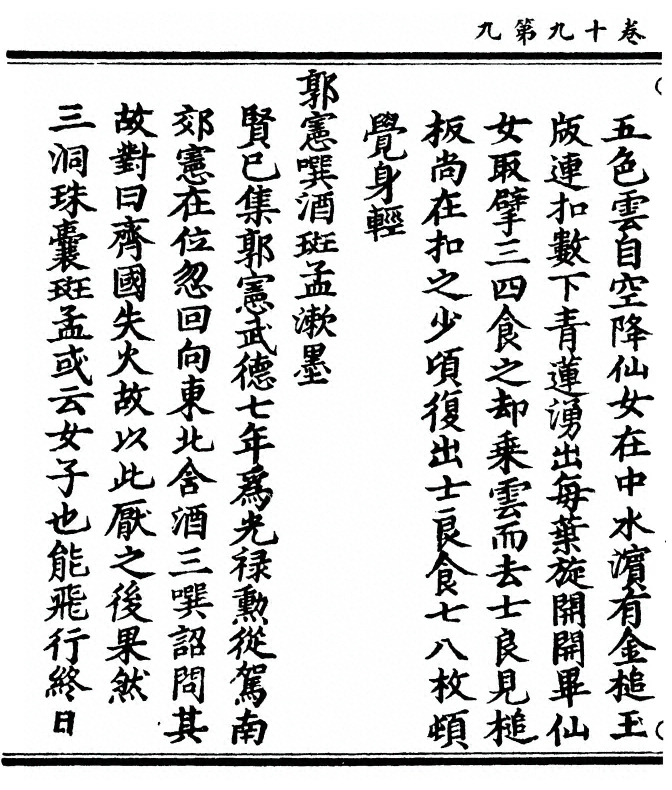 卷十九第九
五色雲自空降仙女在中水濵有金槌玉
版連扣數下青蓮湧出每葉旋開開畢仙
女取擘三四食之却乘雲而去士良見槌
板尚在扣之少頃復出士良食七八枚頓
覺身輕
郭憲噀酒斑孟漱墨
賢已集郭憲武德七年爲光禄勲從駕南
郊憲在位忽回向東北含酒三噀詔問其
故對曰齊國失火故以此厭之後果然
三洞珠囊斑孟或云女子也能飛行終日